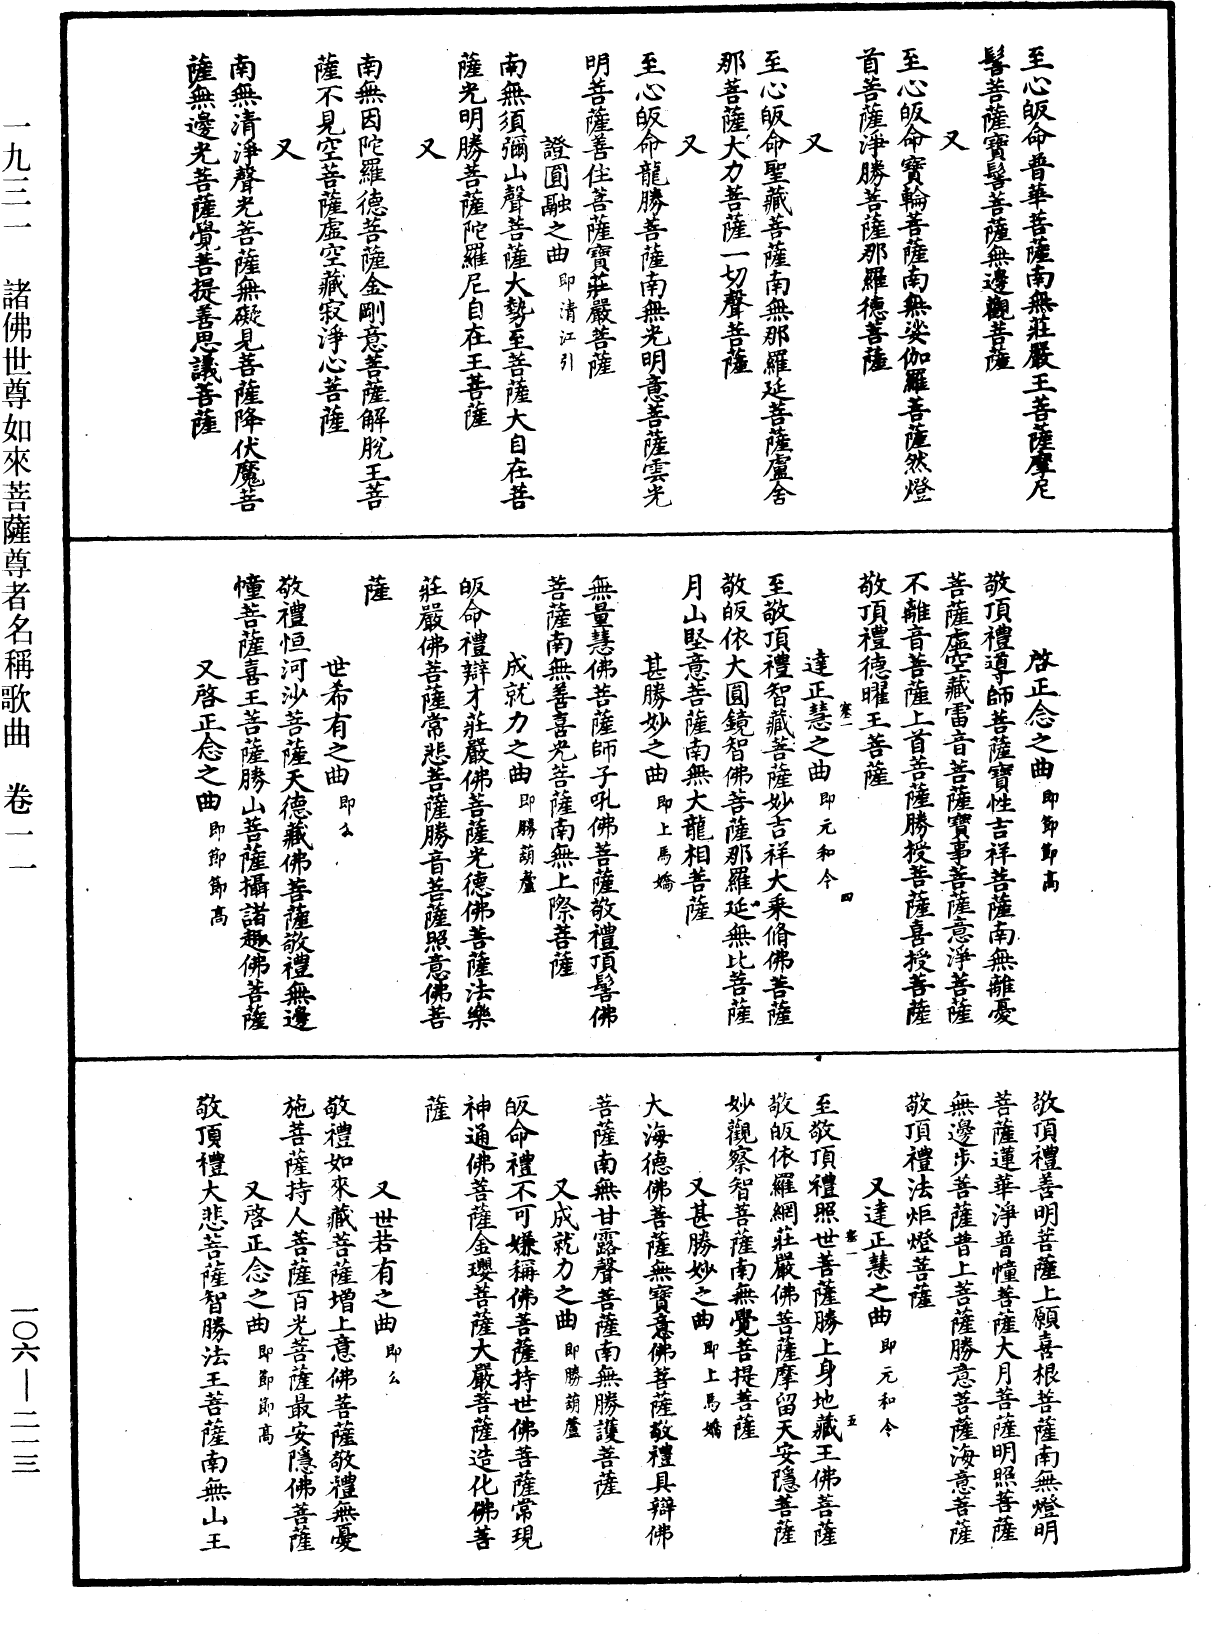 至心皈命普華菩薩南無莊嚴王菩薩摩尼
髻菩薩寶髻菩薩無邊觀菩薩
又
至心皈命寶輪菩薩南無娑伽羅菩薩然燈
首菩薩淨勝菩薩那羅德菩薩
又
至心皈命聖藏菩薩南無那羅延菩薩盧舍
那菩薩大力菩薩一切聲菩薩
又
至心皈命龍勝菩薩南無光明意菩薩雲光
明菩薩善住菩薩寶莊嚴菩薩
證圓融之曲 即清江引
南無須彌山聲菩薩大勢至菩薩大自在菩
薩光明勝菩薩陀羅尼自在王菩薩
又
南無因陀羅德菩薩金剛意菩薩解脫王菩
薩不見空菩薩虛空藏寂淨心菩薩
又
南無清淨聲光菩薩無礙見菩薩降伏魔菩
薩無邊光菩薩覺菩提善思議菩薩
啓正念之曲 即節節高
敬頂禮導師菩薩寶性吉祥菩薩南無離憂
菩薩虛空藏雷音菩薩寶事菩薩意淨菩薩
不離音菩薩上首菩薩勝授菩薩喜授菩薩
敬頂禮德曜王菩薩
四
達正慧之曲 即元和令
至敬頂禮智藏菩薩妙吉祥大乘脩佛菩薩
敬皈依大圓鏡智佛菩薩那羅延無比菩薩
月山堅意菩薩南無大龍相菩薩
甚勝妙之曲 即上馬嬌
無量慧佛菩薩師子吼佛菩薩敬禮頂髻佛
菩薩南無善喜光菩薩南無上際菩薩
成就力之曲 即勝葫蘆
皈命禮辯才莊嚴佛菩薩光德佛菩薩法樂
莊嚴佛菩薩常悲菩薩勝音菩薩照意佛菩
薩
世希有之曲 即么
敬禮恒河沙菩薩天德藏佛菩薩敬禮無邊
憧菩薩喜王菩薩勝山菩薩攝諸趣佛菩薩
又啓正念之曲 即節節高
敬頂禮善明菩薩上願喜根菩薩南無燈明
菩薩蓮華淨普憧菩薩大月菩薩明照菩薩
無邊步菩薩普上菩薩勝意菩薩海意菩薩
敬頂禮法炬燈菩薩
又達正慧之曲 即元和令
五
至敬頂禮照世菩薩勝上身地藏王佛菩薩
敬皈依羅網莊嚴佛菩薩摩留天安隱菩薩
妙觀察智菩薩南無覺菩提菩薩
又甚勝妙之曲 即上馬嬌
大海德佛菩薩無寶意佛菩薩敬禮具辯佛
菩薩南無甘露聲菩薩南無勝護菩薩
又成就力之曲 即勝葫蘆
皈命禮不可嫌稱佛菩薩持世佛菩薩常現
神通佛菩薩金瓔菩薩大嚴菩薩造化佛菩
薩
又世若有之曲 即么
敬禮如來藏菩薩增上意佛菩薩敬禮無憂
施菩薩持人菩薩百光菩薩最安隱佛菩薩
又啓正念之曲 即節節高
敬頂禮大悲菩薩智勝法王菩薩南無山王
一九三一 諸佛世尊如來菩薩尊者名稱歌曲 卷一一
一〇六—二一三